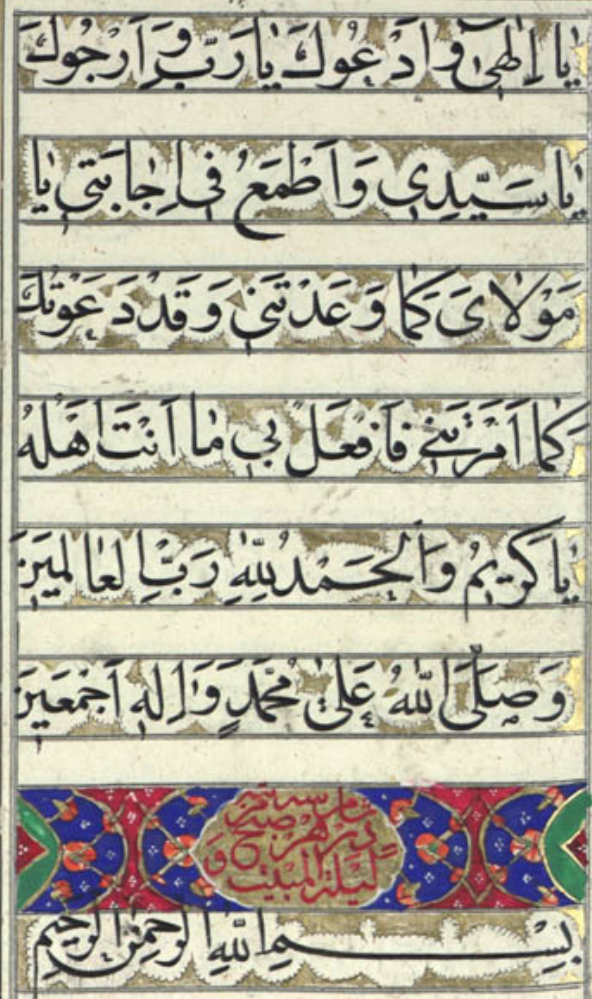 يا اِلٰهى وَاَدْعُوكَ يا رَبِّ وَاَرْجُوكَ
يا سَيِّدِى وَاَطْمَعُ فى اِجابَتى يا
مَوْلاىَ كَما وَعَدْتَنى وَقَدْ دَعَوْتُكَ
كَما اَمَرْتَنى فَافْعَلْ بى ما اَنْتَ اَهْلُهُ
يا كَريمُ وَالْحَمْدُ لِلّٰهِ رَبِّ الْعالَمينَ
وَصَلَّى اللّٰهُ عَلىٰ مُحَمَّدٍ وَاٰلِهِ اَجْمَعينَ
در هر صبح
ليلة المبيت و
بِسْمِ اللّٰهِ الرَّحْمٰنِ الرَّحيمِ